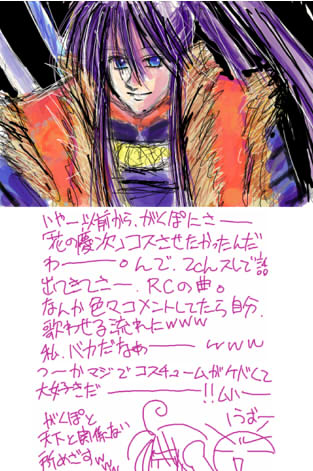 いやー以前から、がくぽにさーー
「花の慶次」コスさせたかったんだ
わーー。んで、2chスレで話
出てきてさー、RCの曲。
なんか色々コメントしてたら自分、
歌わせる流れにwww
私、バカだなぁーー www
つーかマジでコスチュームがケバくて
大好きだーーー!!ムハー
がくぽと
天下と関係ない
所めざすwww
うおー